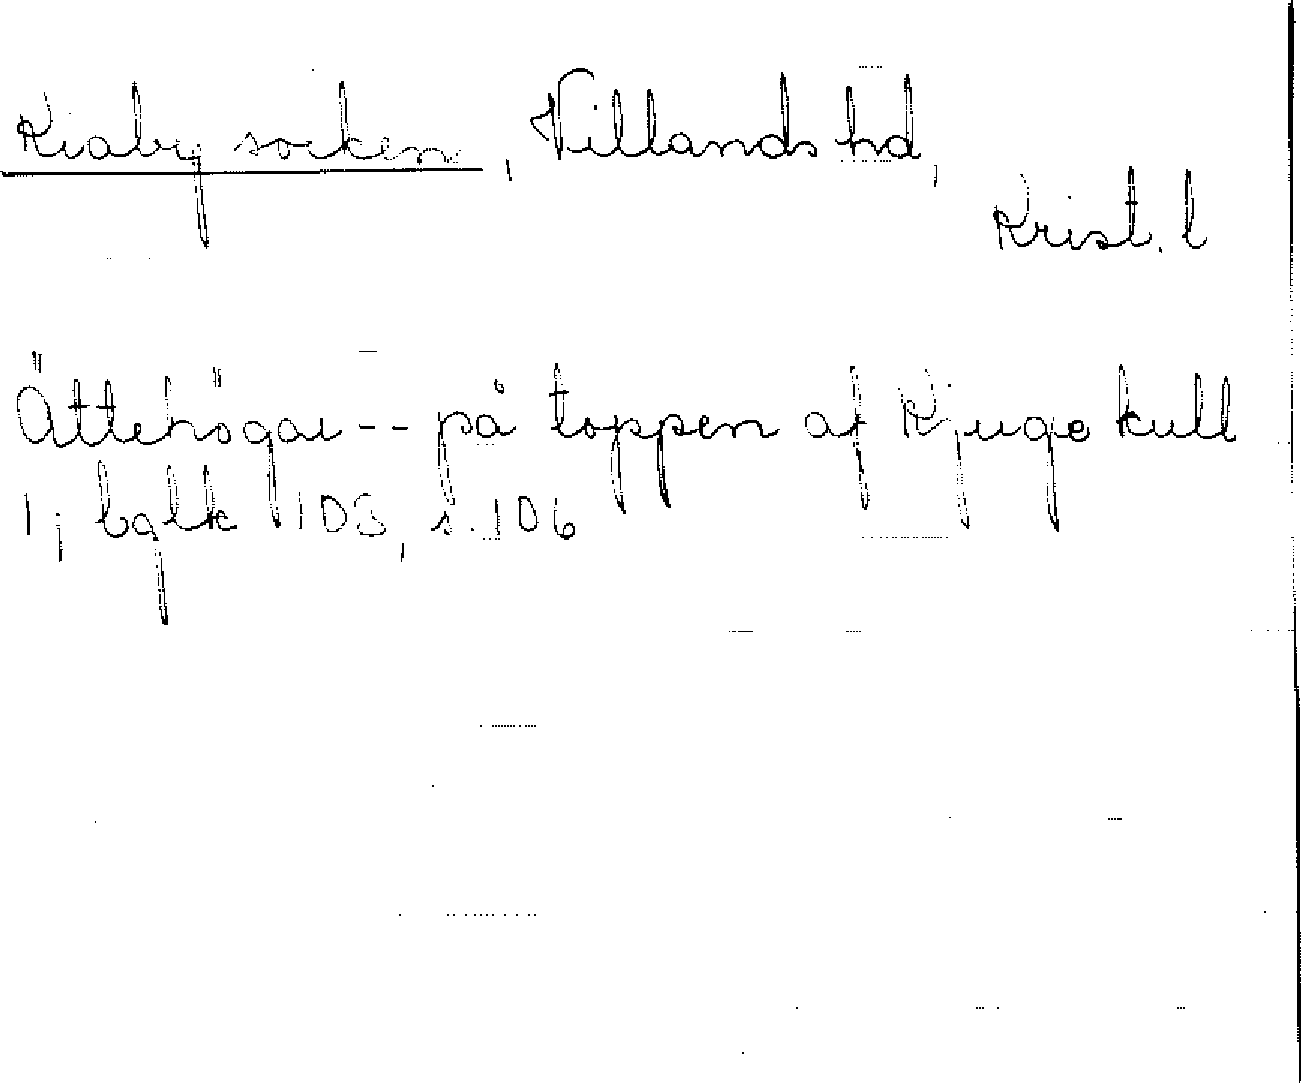 Kiaby socken, Villands hd,
Krist. l
Ättehögar -- på toppen af Kjuge kull
1; bglk 103, s. 106